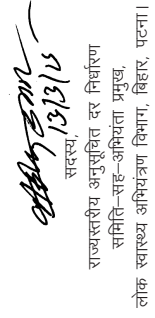 13/3/25
सदस्य,
राज्यस्तरीय अनुसूचित दर निर्धारण
समिति–सह–अभियंता प्रमुख,
लोक स्वास्थ्य अभियंत्रण विभाग, बिहार, पटना।